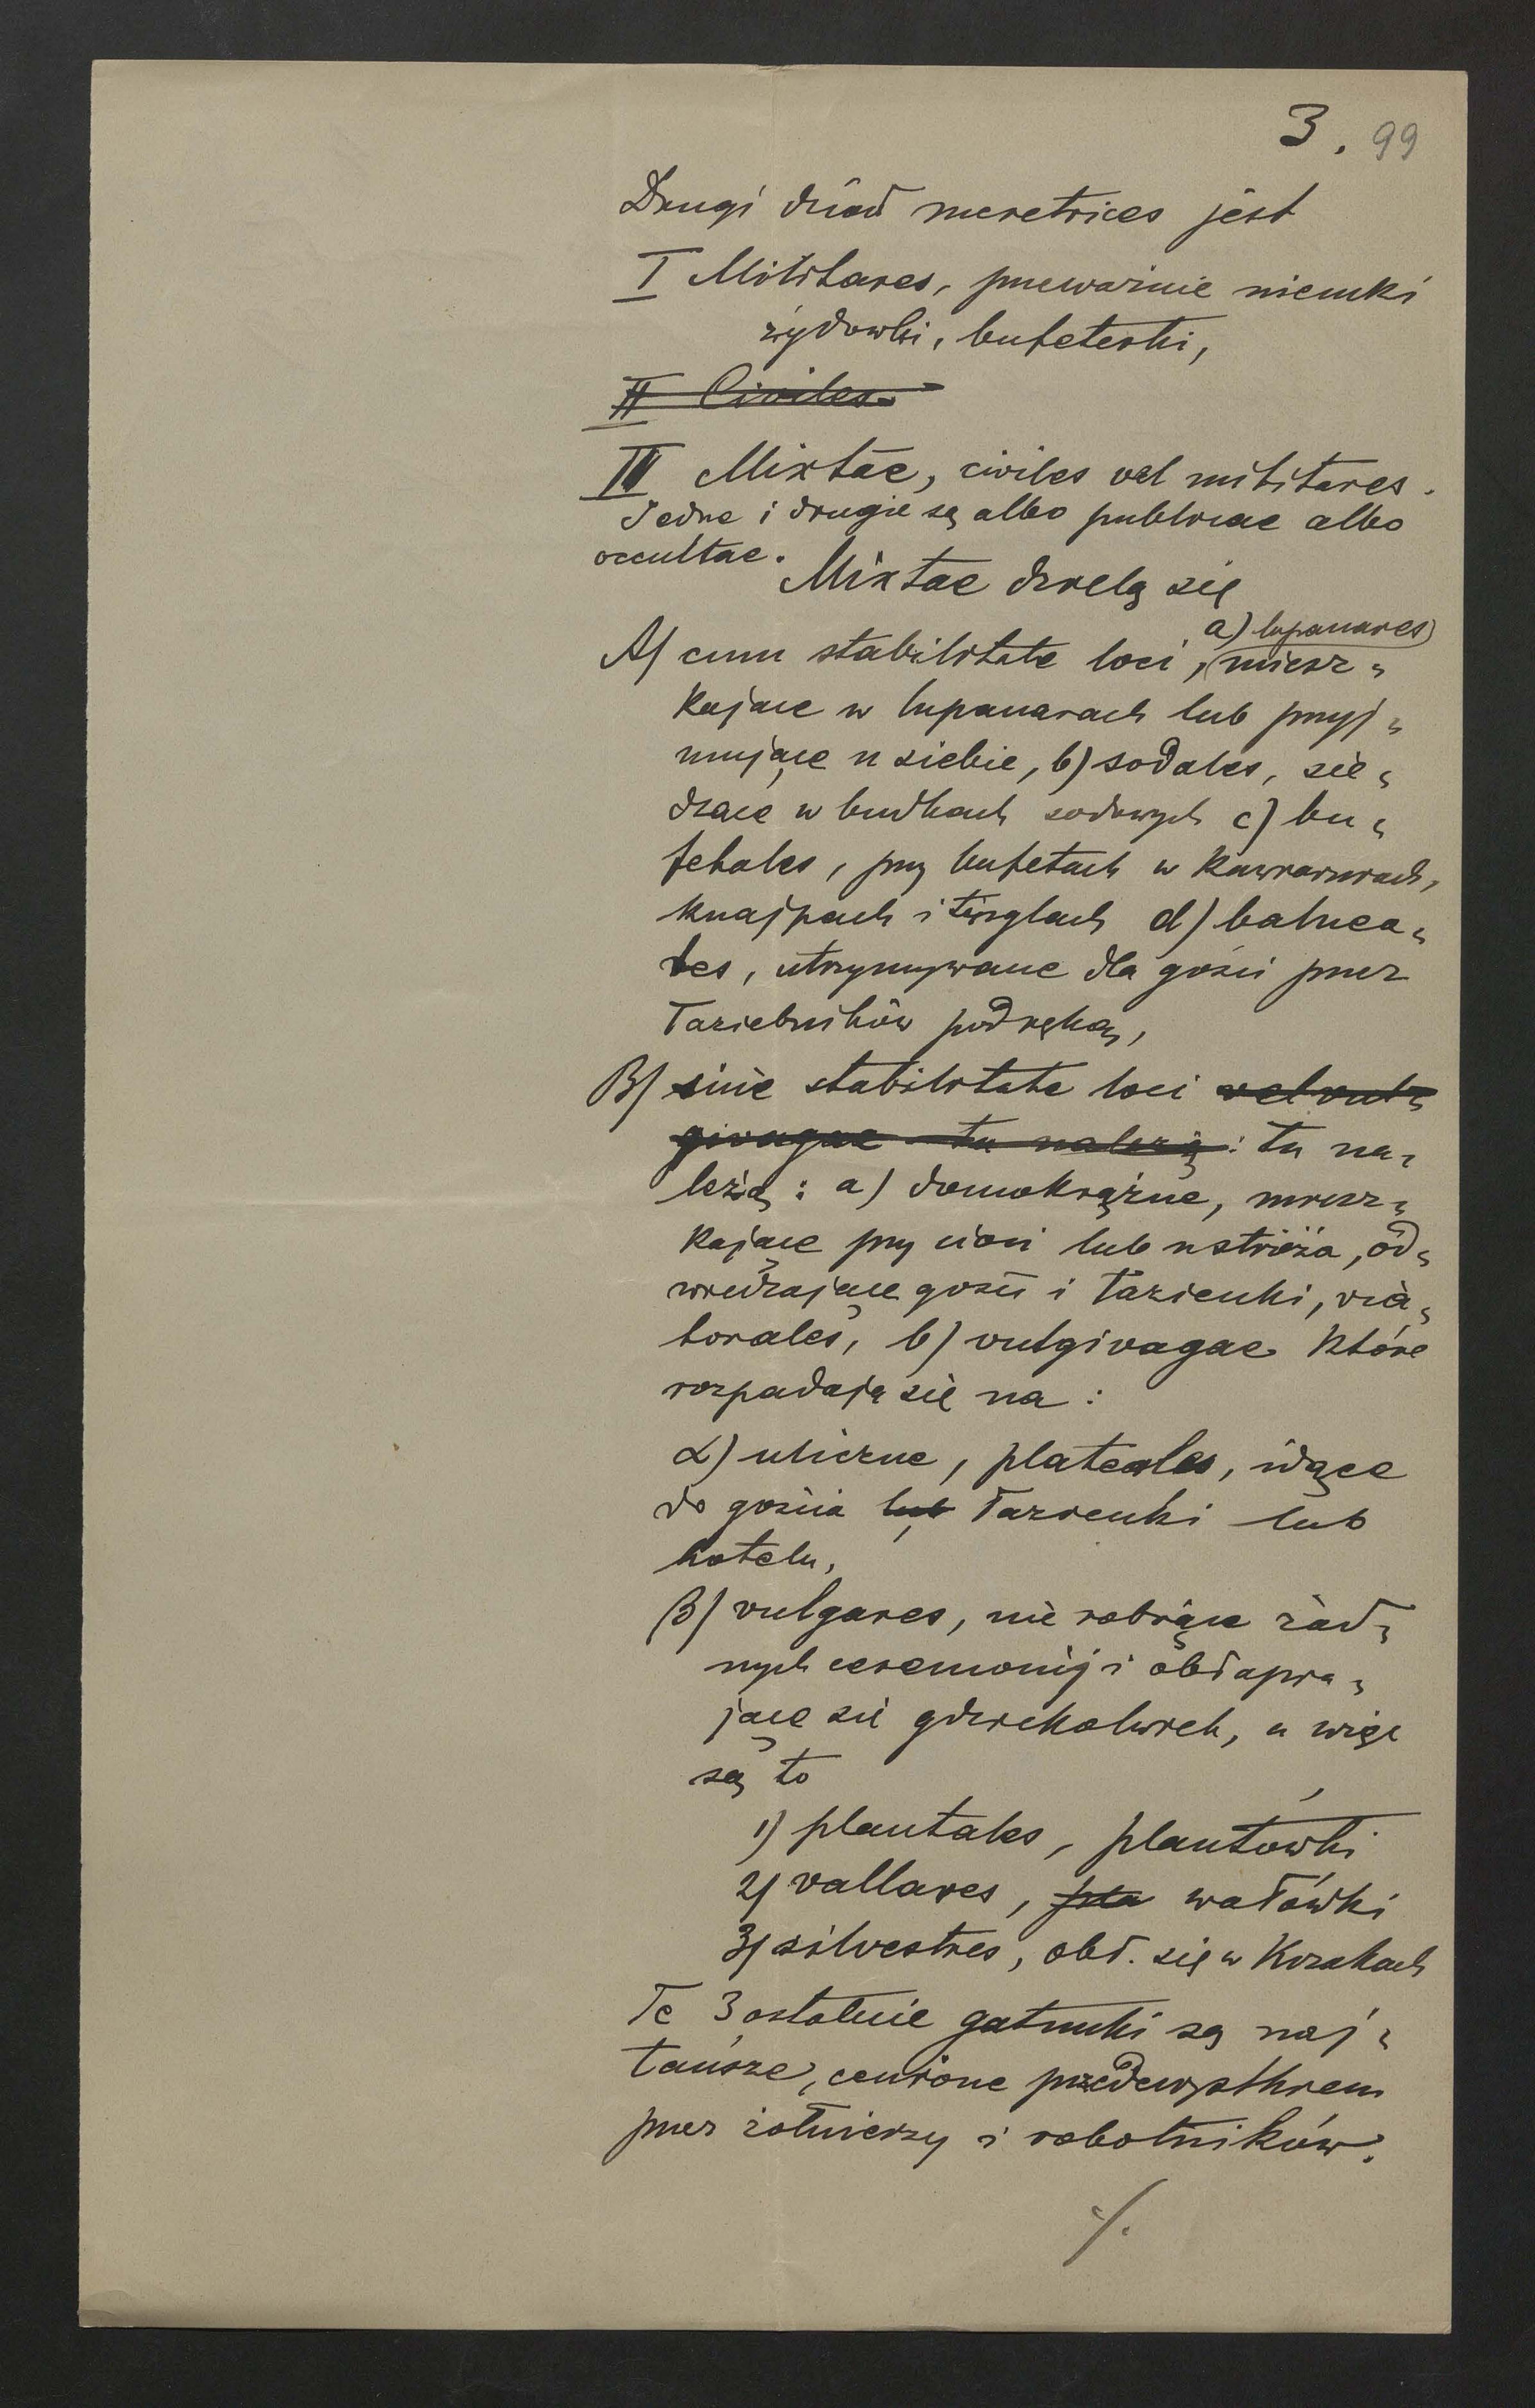 3. 99
Drugi dział meretrices jest
I Militares, przeważnie niemki
żydowki, bufeterki,
II Civiles
II Mixtae, civiles vel militares.
Jedne i drugie są albo publicae albo
occultae.
Mixtae dzielą się
a) lupanares
A) cum stabilitate loci, (miesz-
kające w lupanarach lub przyj-
mujące u siebie, b) sodales, sie-
dzące w budkach sodowych c) bu-
fetales, przy bufetach w kawiarniach,
knajpach i tinglach d) balnea-
les, utrzymywane dla gości przez
łaziebników pod ręką,
B) sine stabilitate loci vel vul-
givagae tu należą: tu na-
leżą: a) domokrążne, miesz-
kające przy cioci lub u stróża, od-
wiedzające gości i łazienki, via-
torales, b) vulgivagae które
rozpadają się na:
α) uliczne, plateales, idące
do gościa lub łazienki lub
hotelu,
β) vulgares, nie robiące żad-
nych ceremonij i obłapia-
jące się gdziekolwiek, a więc
są to
1) plantales, plantówki
2) vallares, pla wałówki
3) silvestres, obł. się w krzakach
Te 3 ostatnie gatunki są naj-
tańsze, cenione przedewszystkiem
przez żołnierzy i robotników.
./.